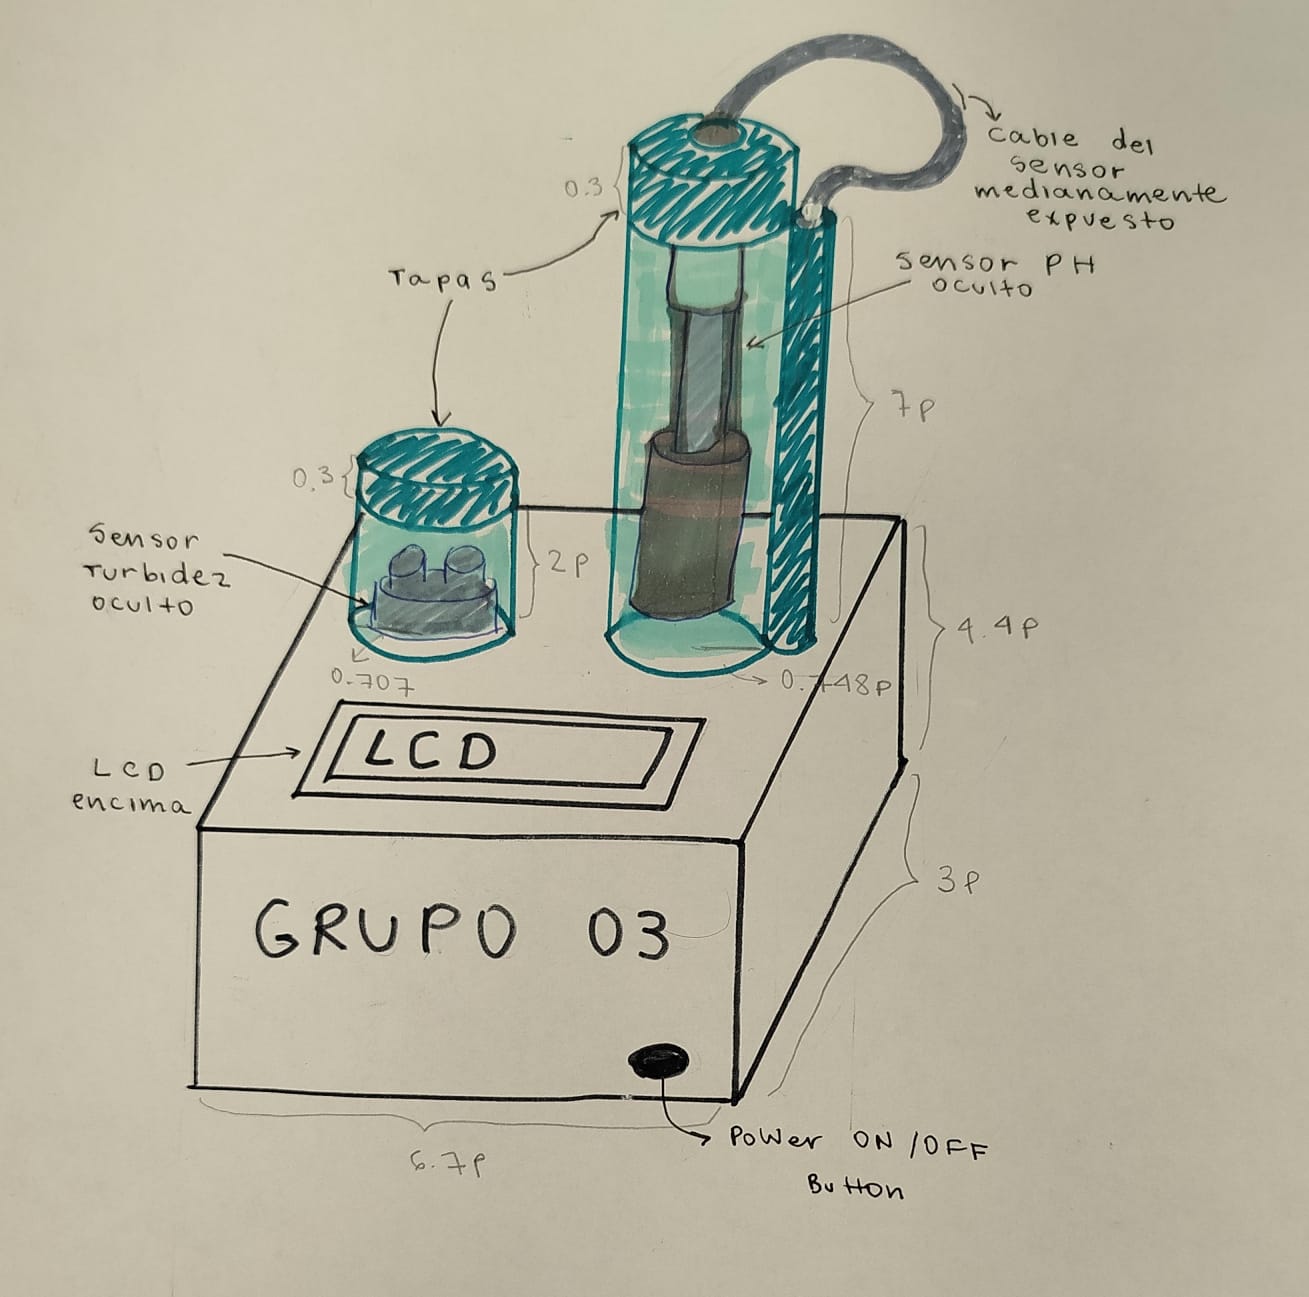 cable del
sensor
medianamente
expuesto
0.3
sensor PH
oculto
Tapas
7p
0.3
sensor
Turbidez
oculto
2p
4.4p
0.707
0.748p
LCD
LCD
encima
GRUPO 03
3p
6.7p
Power ON/OFF
Button